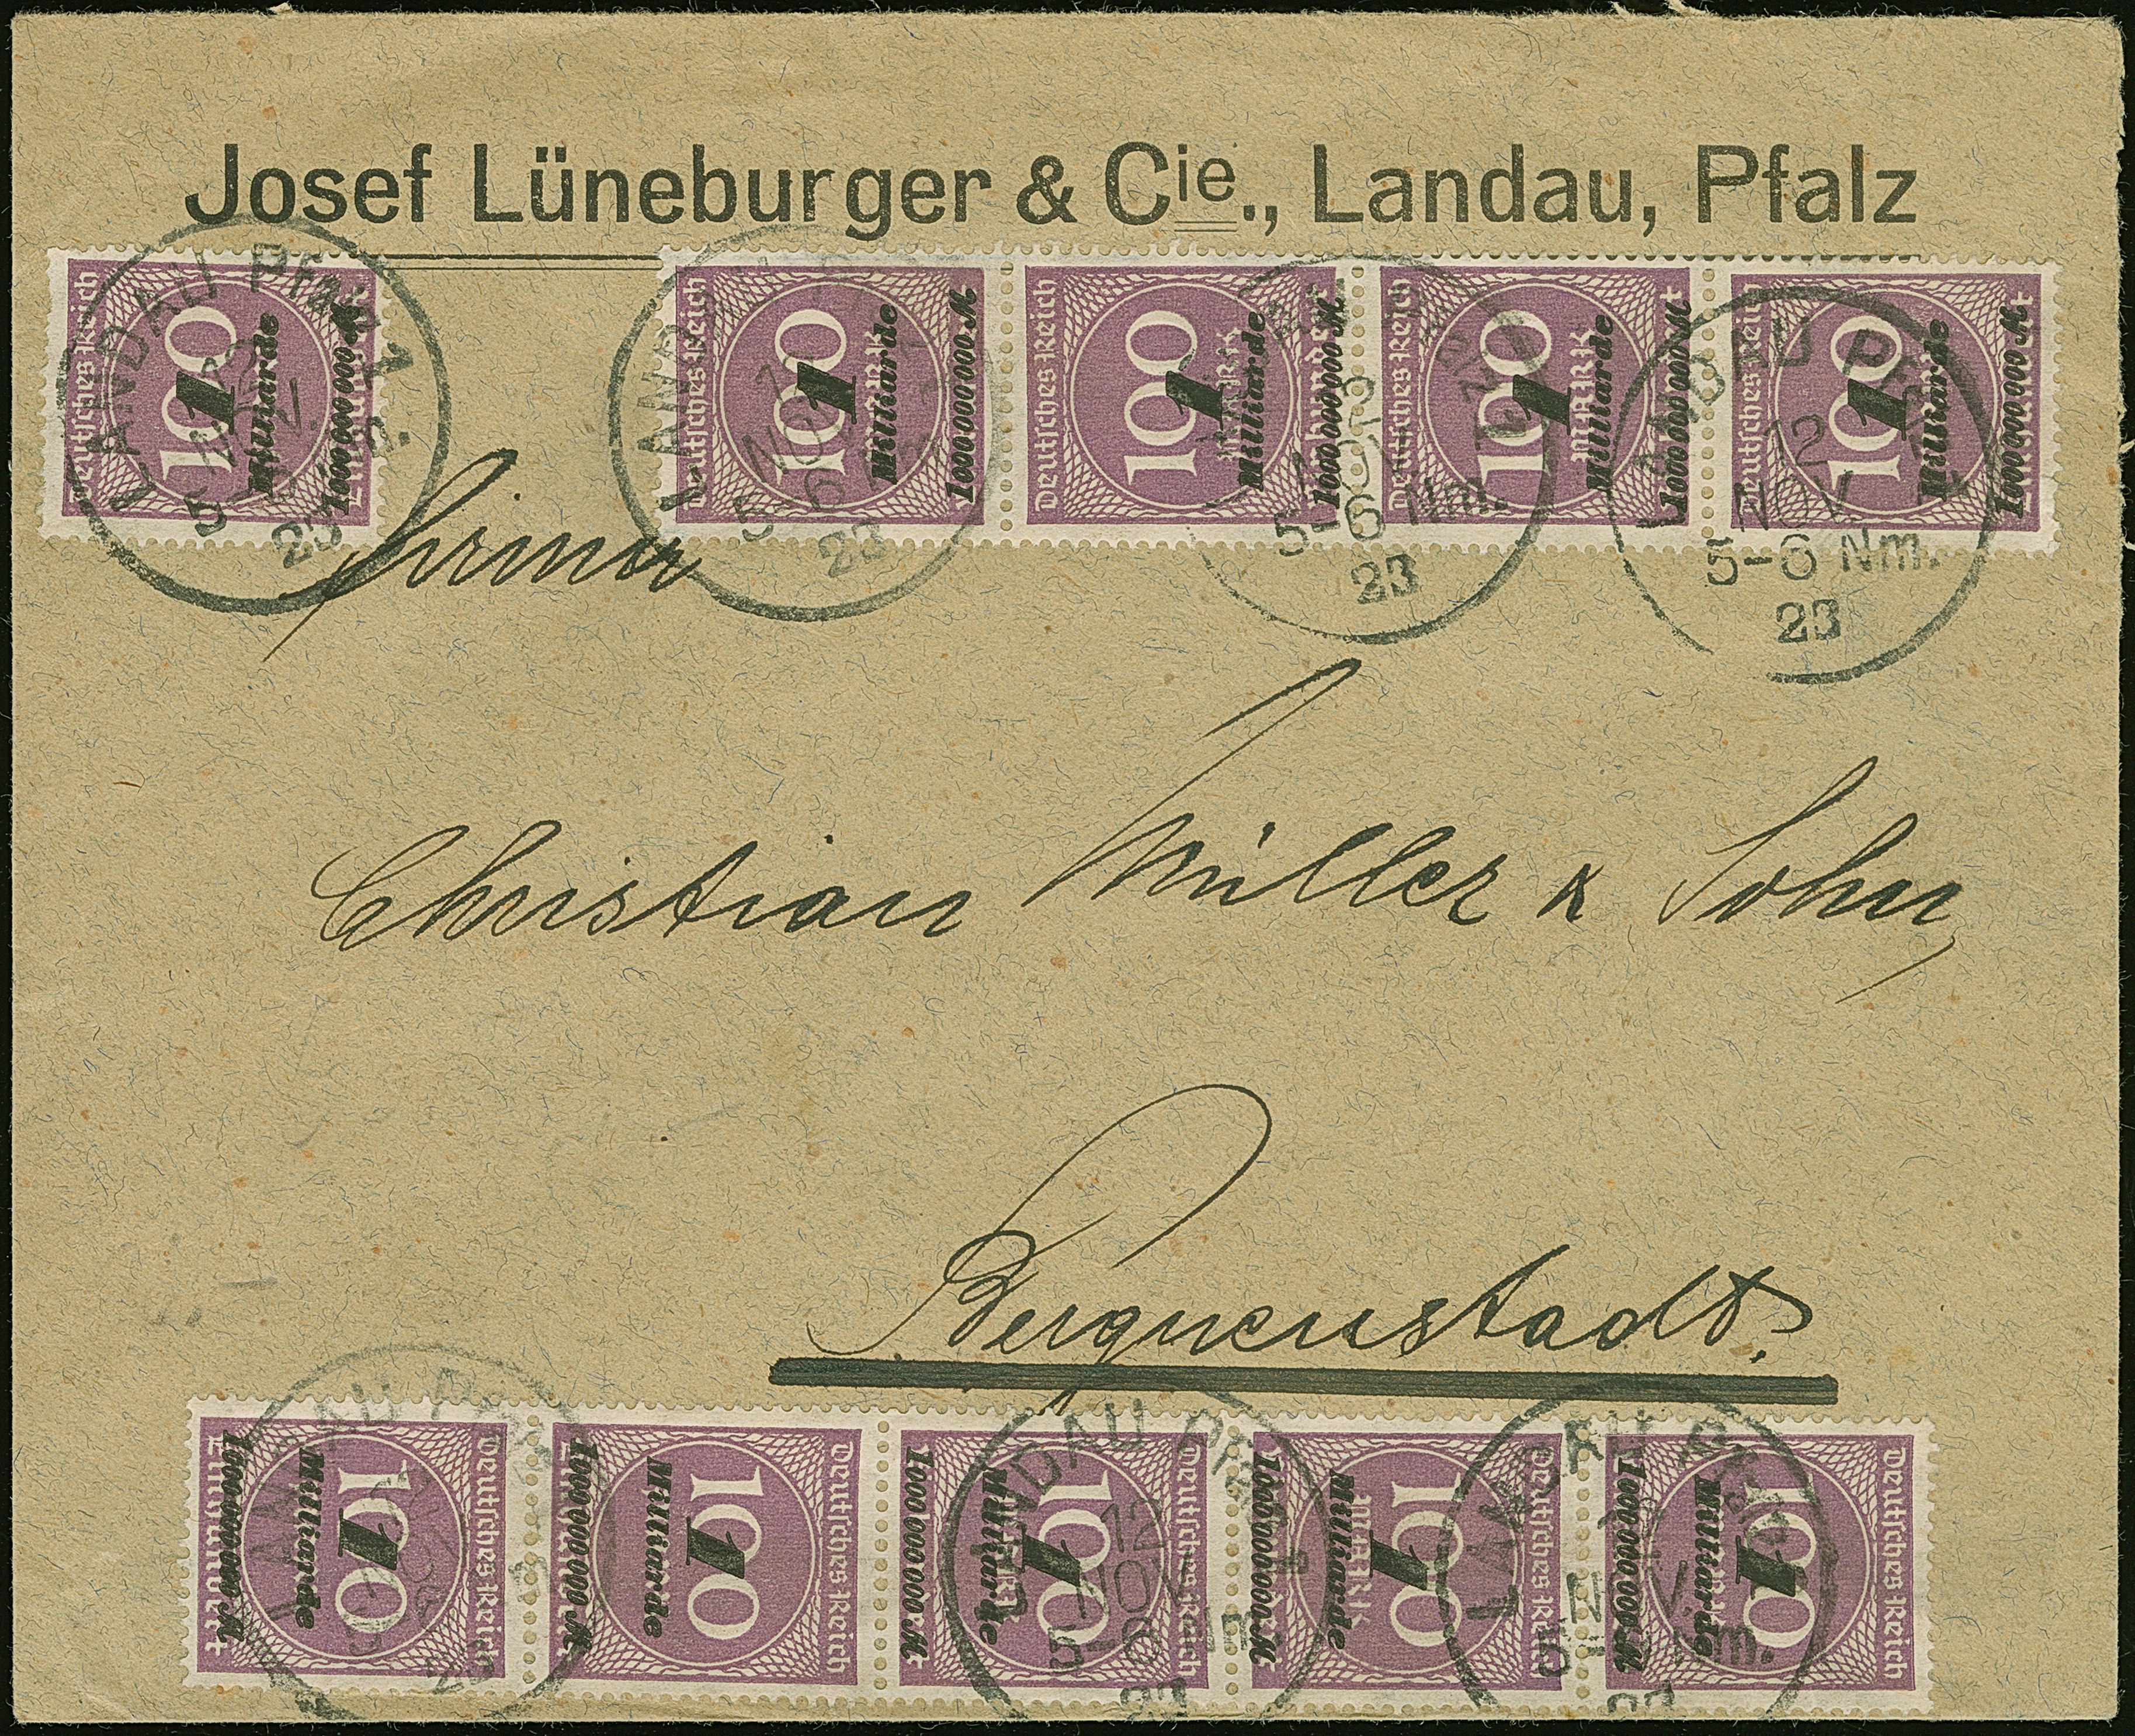 Josef Lüneburger & Cie., Landau, Pfalz
Deutsches Reich 100 1 Milliarde 1000 000 000 M
Deutsches Reich 100 1 Milliarde 1000 000 000 M
Deutsches Reich 100 1 Milliarde 1000 000 000 M
Deutsches Reich 100 1 Milliarde 1000 000 000 M
Deutsches Reich 100 1 Milliarde 1000 000 000 M
LANDAU Pfalz
23
LAND
NOV
5-6
23
5-6 Nm.
23
LANDAU PF
12
5-6 Nm.
23
Firma
Christian Müller & Sohn,
Bergneustadt.
Deutsches Reich 100 1 Milliarde 1000 000 000 M
Deutsches Reich 100 1 Milliarde 1000 000 000 M
Deutsches Reich 100 1 Milliarde 1000 000 000 M
Deutsches Reich 100 1 Milliarde 1000 000 000 M
Deutsches Reich 100 1 Milliarde 1000 000 000 M
LANDAU
LANDAU PF
12
NOV
5-6
23
LANDAU
Nm.
23